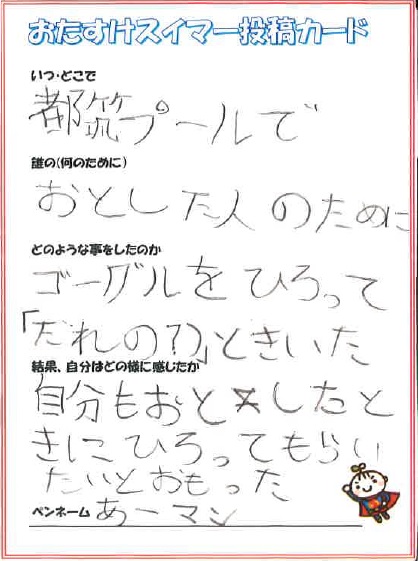 おたすけスイマー投稿カード
いつ・どこで
都筑プールで
誰の(何のために)
おとした人のために
どのような事をしたのか
ゴーグルをひろって
「だれの？」ときいた
結果、自分はどの様に感じたか
自分もおとしたと
きにひろってもらい
たいとおもった
ペンネーム あーマン